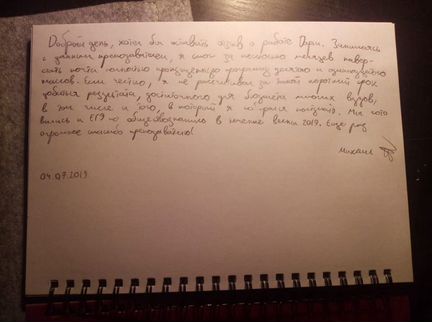 Добрый день, хотел бы оставить отзыв о работе Дарьи. Занимаясь
с данным преподавателем, я смог за несколько месяцев навер-
стать почти полностью пройденную программу десятого и одиннадцатого
классов. Если честно, я не рассчитывал за такой короткий срок
добиться результата, достаточного для бюджета многих вузов,
в том числе и того, в который я собирался поступать. Мы гото
вились к ЕГЭ по обществознанию в течение весны 2019. Еще раз
огромное спасибо преподавателю!
Михаил
04.07.2019